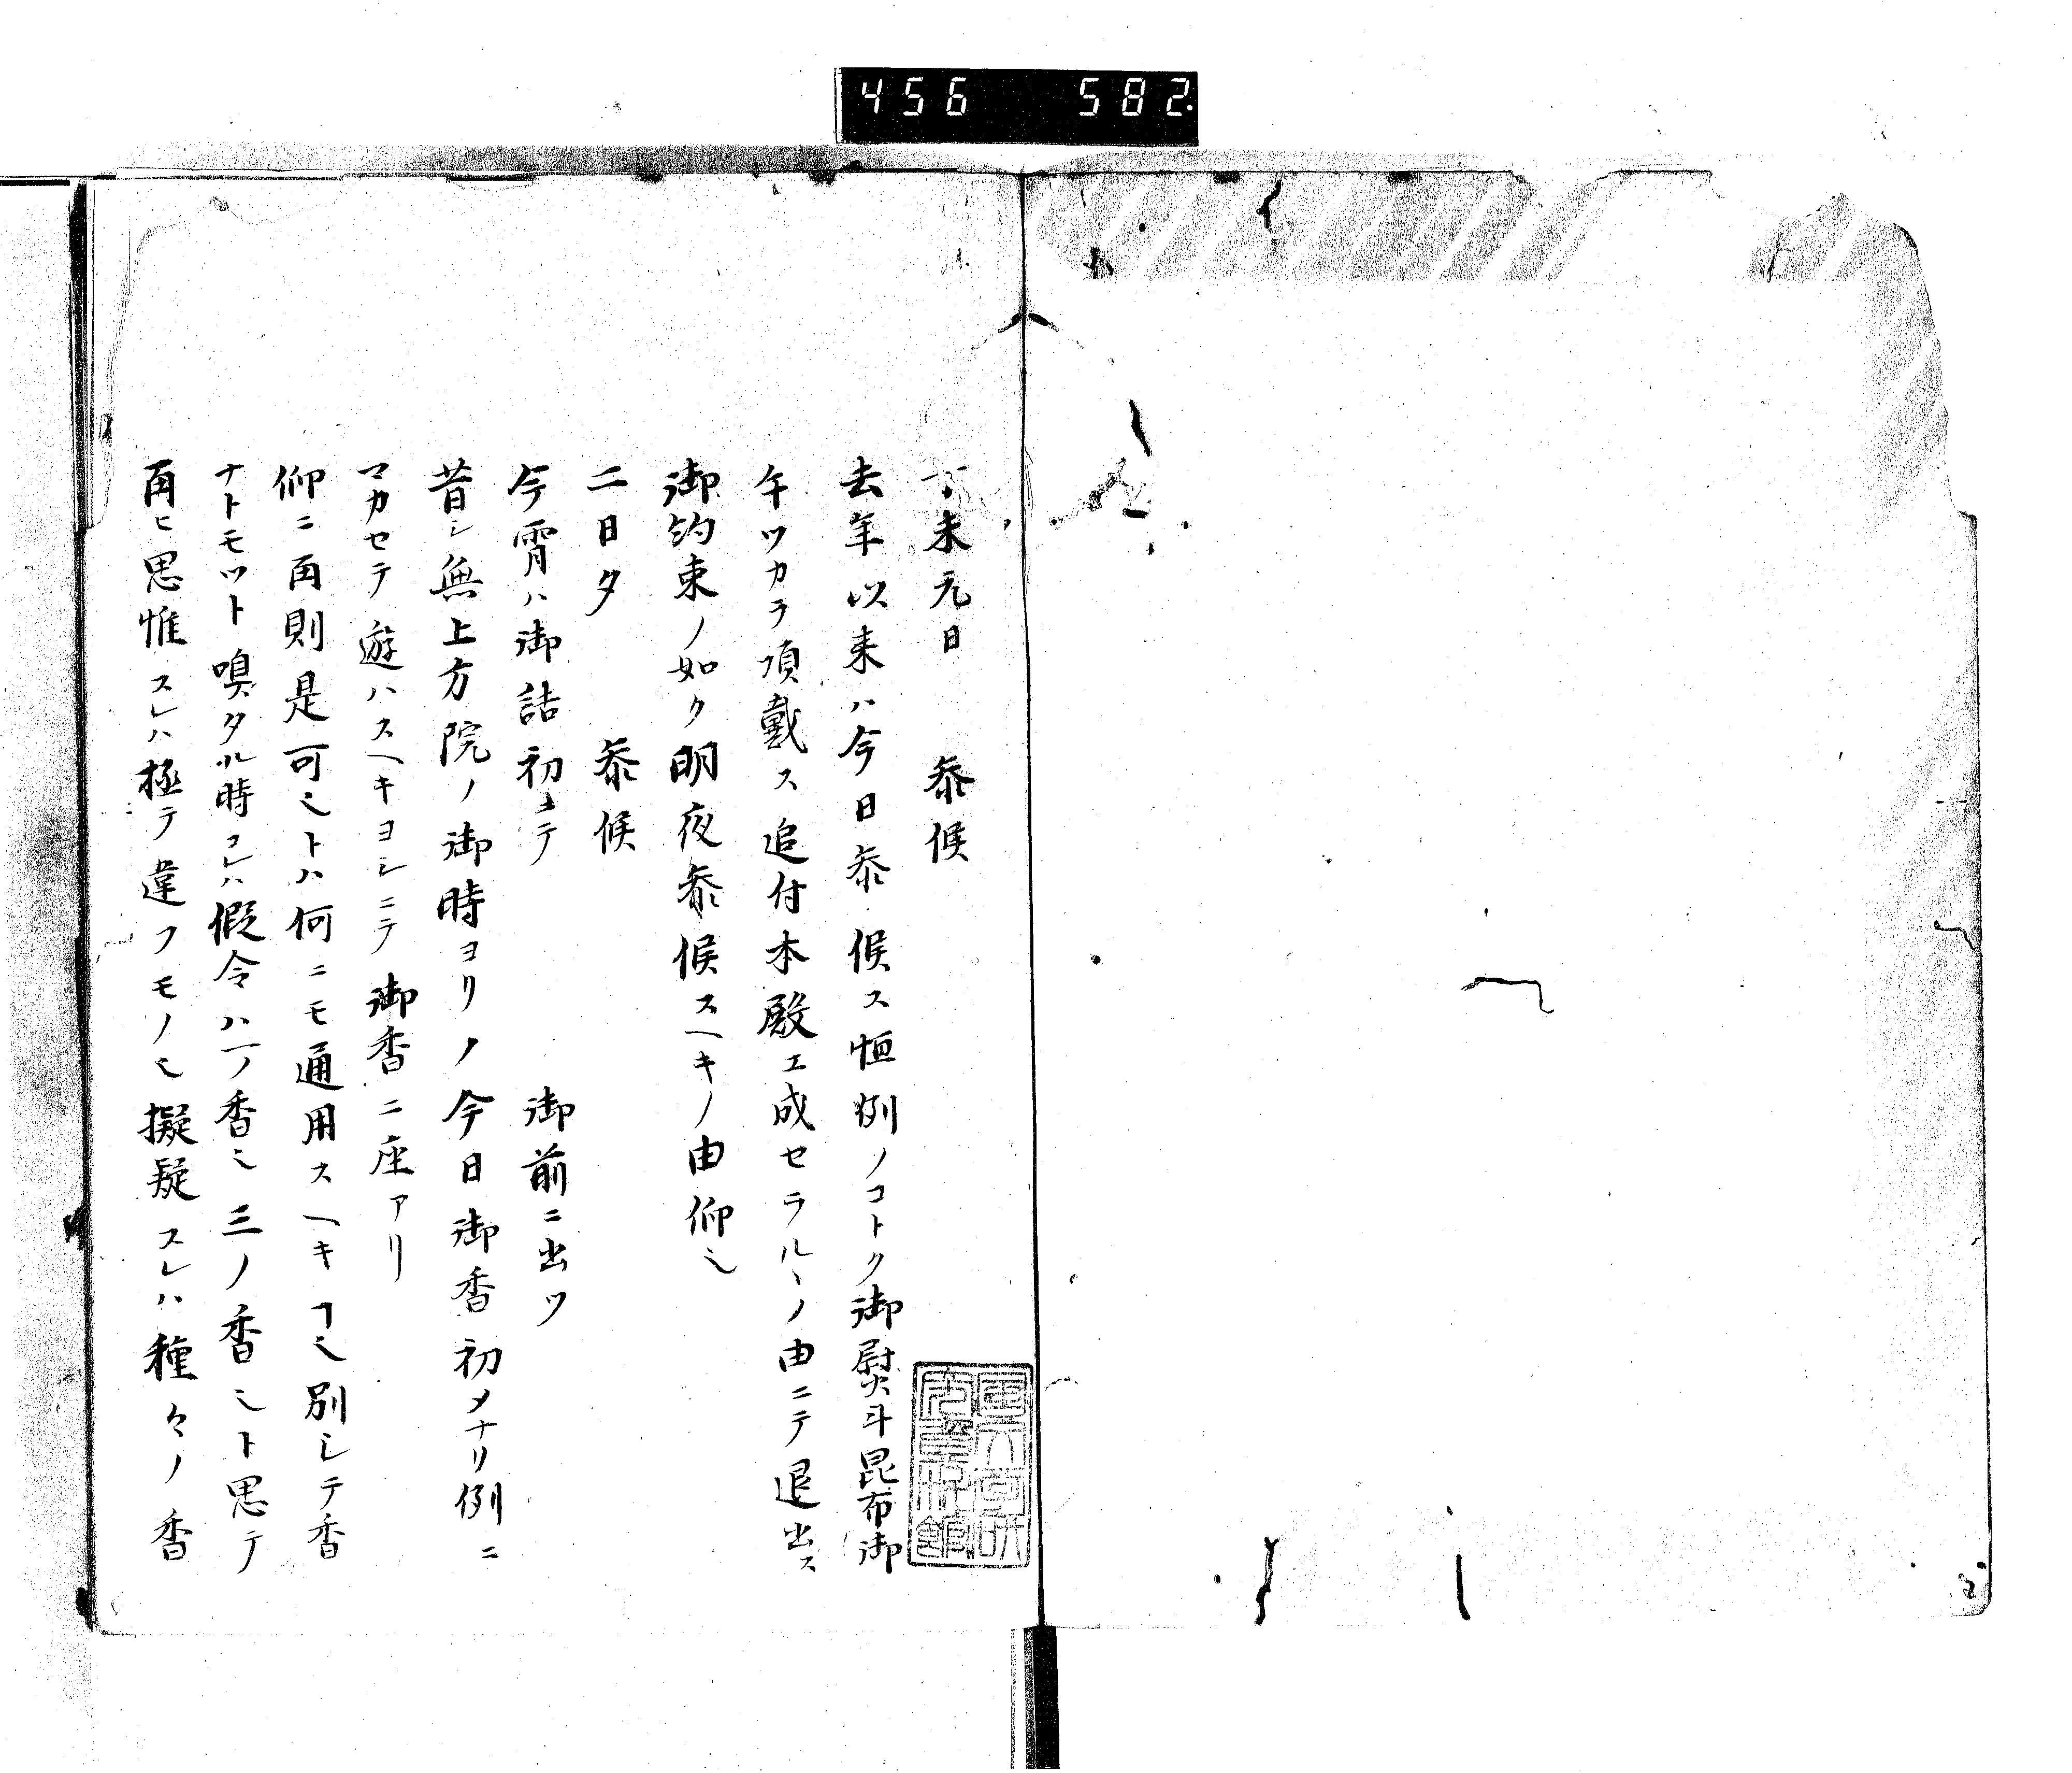 456 582
丁未元日 叅候
去年以来ハ今日叅候ス恒例ノコトク御熨斗昆布御
手ツカラ頂戴ス追付本殿エ成セラルヽノ由ニテ退出ス
御約束ノ如ク明夜叅候スヘキノ由仰也
二日夕 叅候
今宵ハ御詰初ニテ 御前ニ出ツ
昔シ無上方院ノ御時ヨリノ今日御香初メナリ例ニ
マカセテ遊ハスヘキヨシニテ御香ニ座アリ
仰ニ再則是可也トハ何ニモ通用スヘキヿ也別シテ香
ナトモツト嗅タル時コレハ假令ハ一ノ香也三ノ香也ト思テ
再ヒ思惟スレハ極テ違フモノ也擬疑スレハ種々ノ香